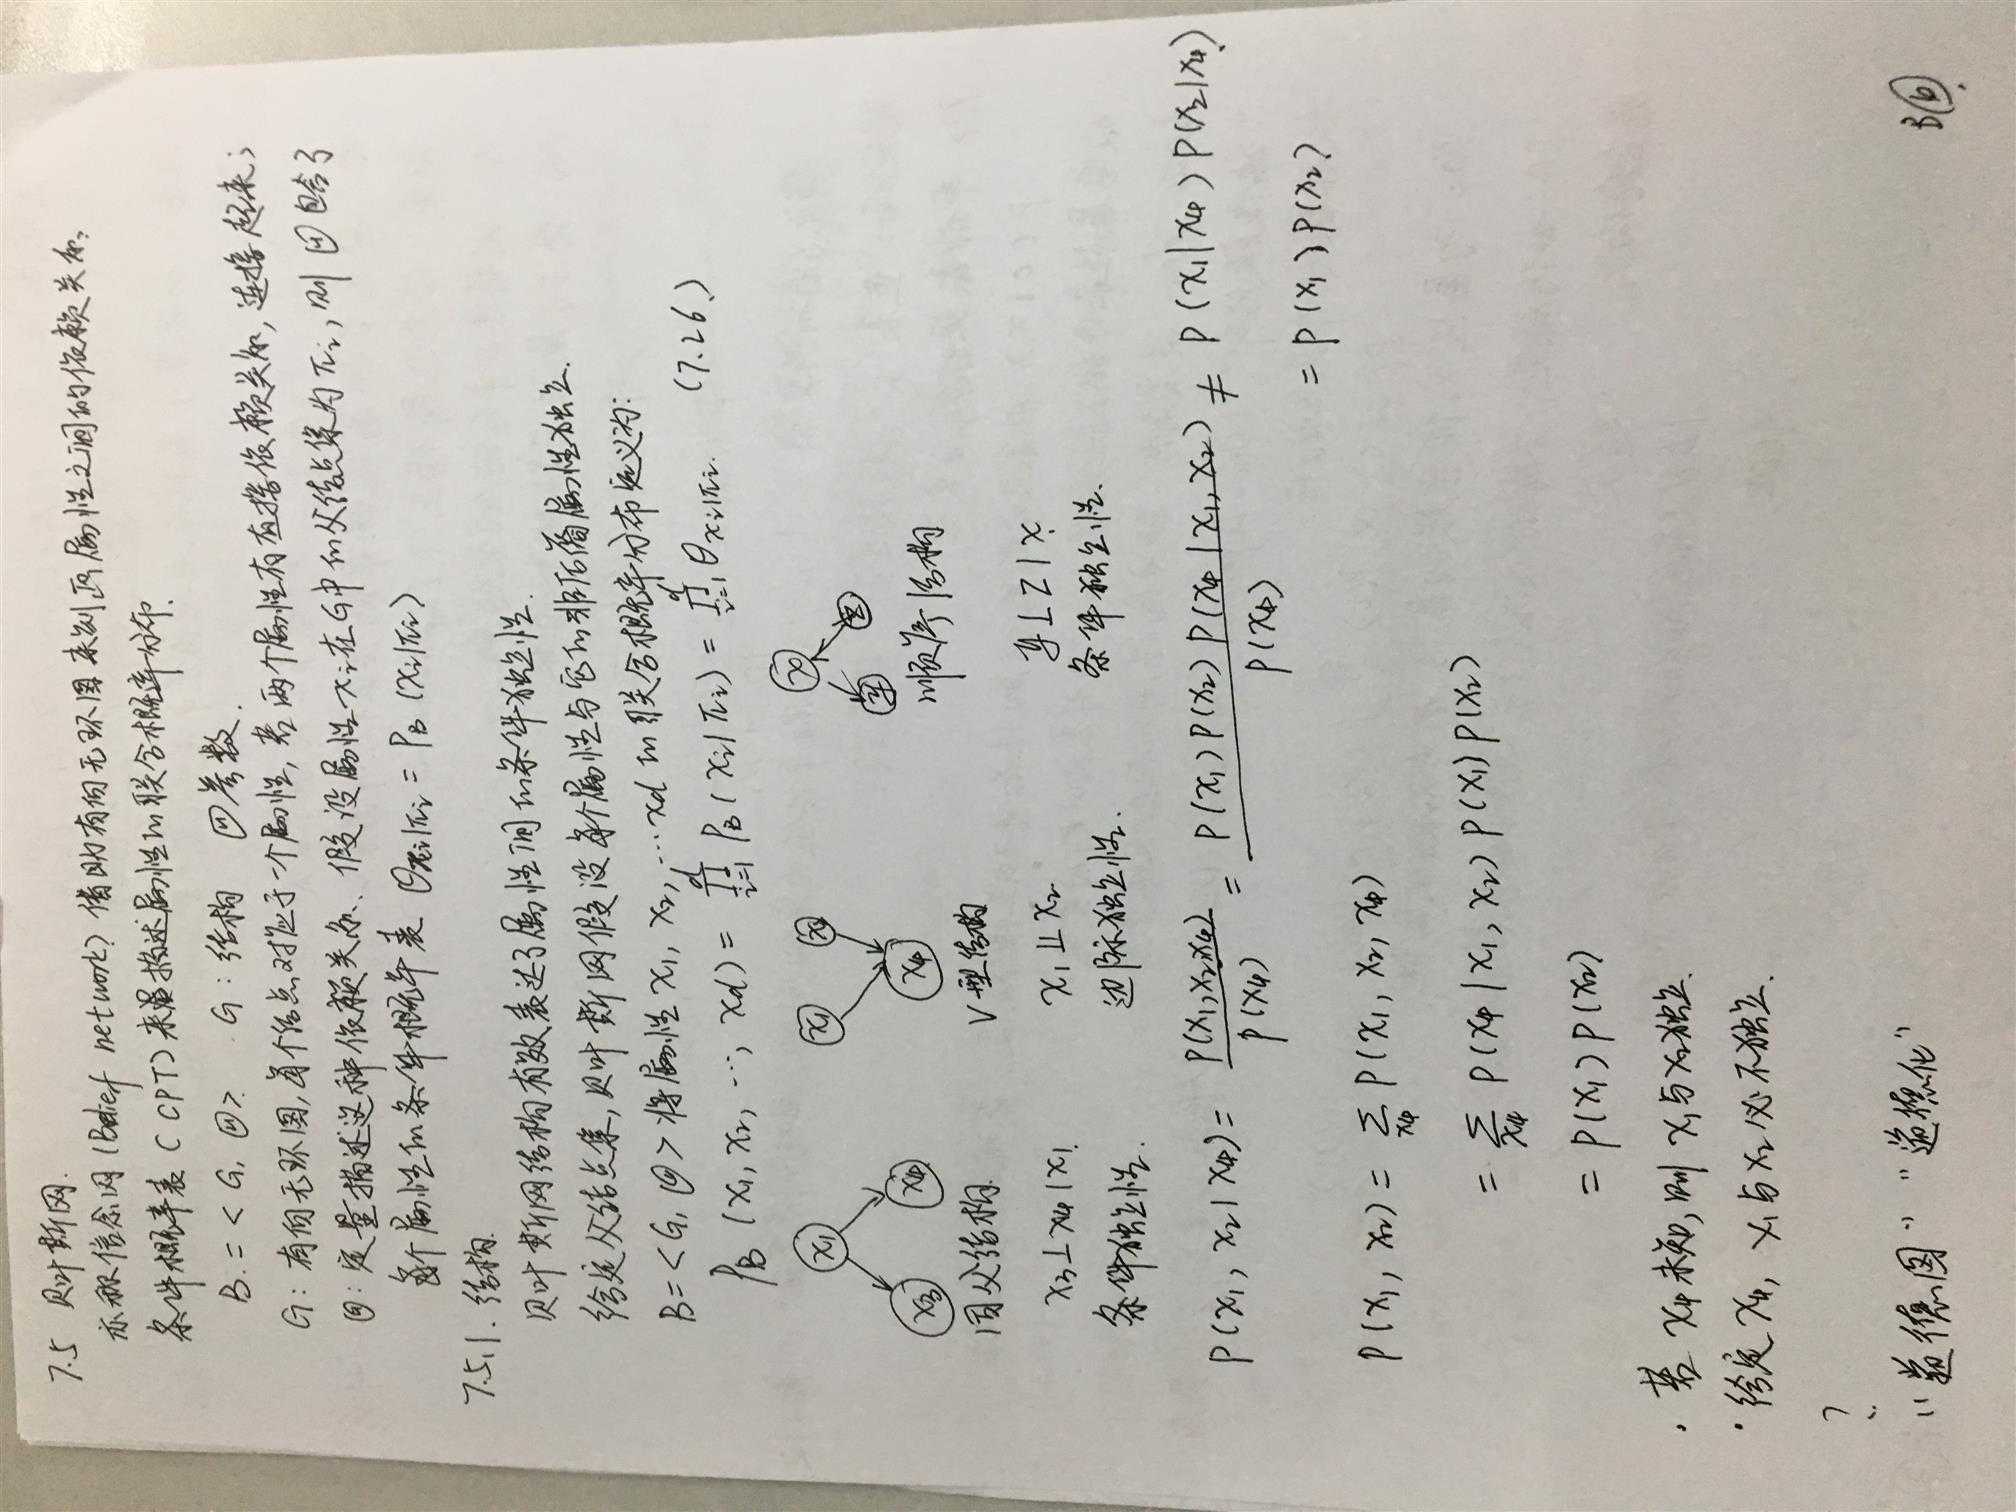 7.5 贝叶斯网.
亦称信念网 (Belief network) 借助有向无环图来刻画属性之间的依赖关系,
条件概率表 (CPT) 来描述属性的联合概率分布.
B = < G, Θ > G: 结构 Θ 参数.
G: 有向无环图, 每个结点对应于一个属性, 若两个属性有直接依赖关系, 连接起来;
Θ: 定量描述这种依赖关系. 假设属性 xi 在 G 中的父结点集为 πi, 则 Θ 包含了
每个属性的条件概率表 θxi|πi = PB (xi|πi)
7.5.1. 结构.
贝叶斯网结构有效表达了属性间的条件独立性.
给定父结点集, 贝叶斯网假设每个属性与它的非后裔属性独立.
B = < G, Θ > 将属性 x1, x2, ... xd 的联合概率分布定义为:
PB (x1, x2, ..., xd) = ∏_{i=1}^{d} PB (xi|πi) = ∏_{i=1}^{d} θxi|πi. (7.26)
x1 x3 x4
x1 x2 x4
x y z
同父结构 V型结构 顺序结构
x3 ⊥ x4 | x1. x1 ⫫ x2 y ⊥ z | x.
条件独立性. 边际独立性. 条件独立性.
P(x1, x2 | x4) = P(x1, x2, x4) / P(x4) = P(x1) P(x2) P(x4 | x1, x2) / P(x4) ≠ P(x1|x4) P(x2|x4)
= P(x1) P(x2)
P(x1, x2) = Σ_{x4} P(x1, x2, x4)
= Σ_{x4} P(x4 | x1, x2) P(x1) P(x2)
= P(x1) P(x2)
· 若 x4 未知, 则 x1 与 x2 独立.
· 给定 x4, x1 与 x2 必不独立.
?
"道德图" "道德化"